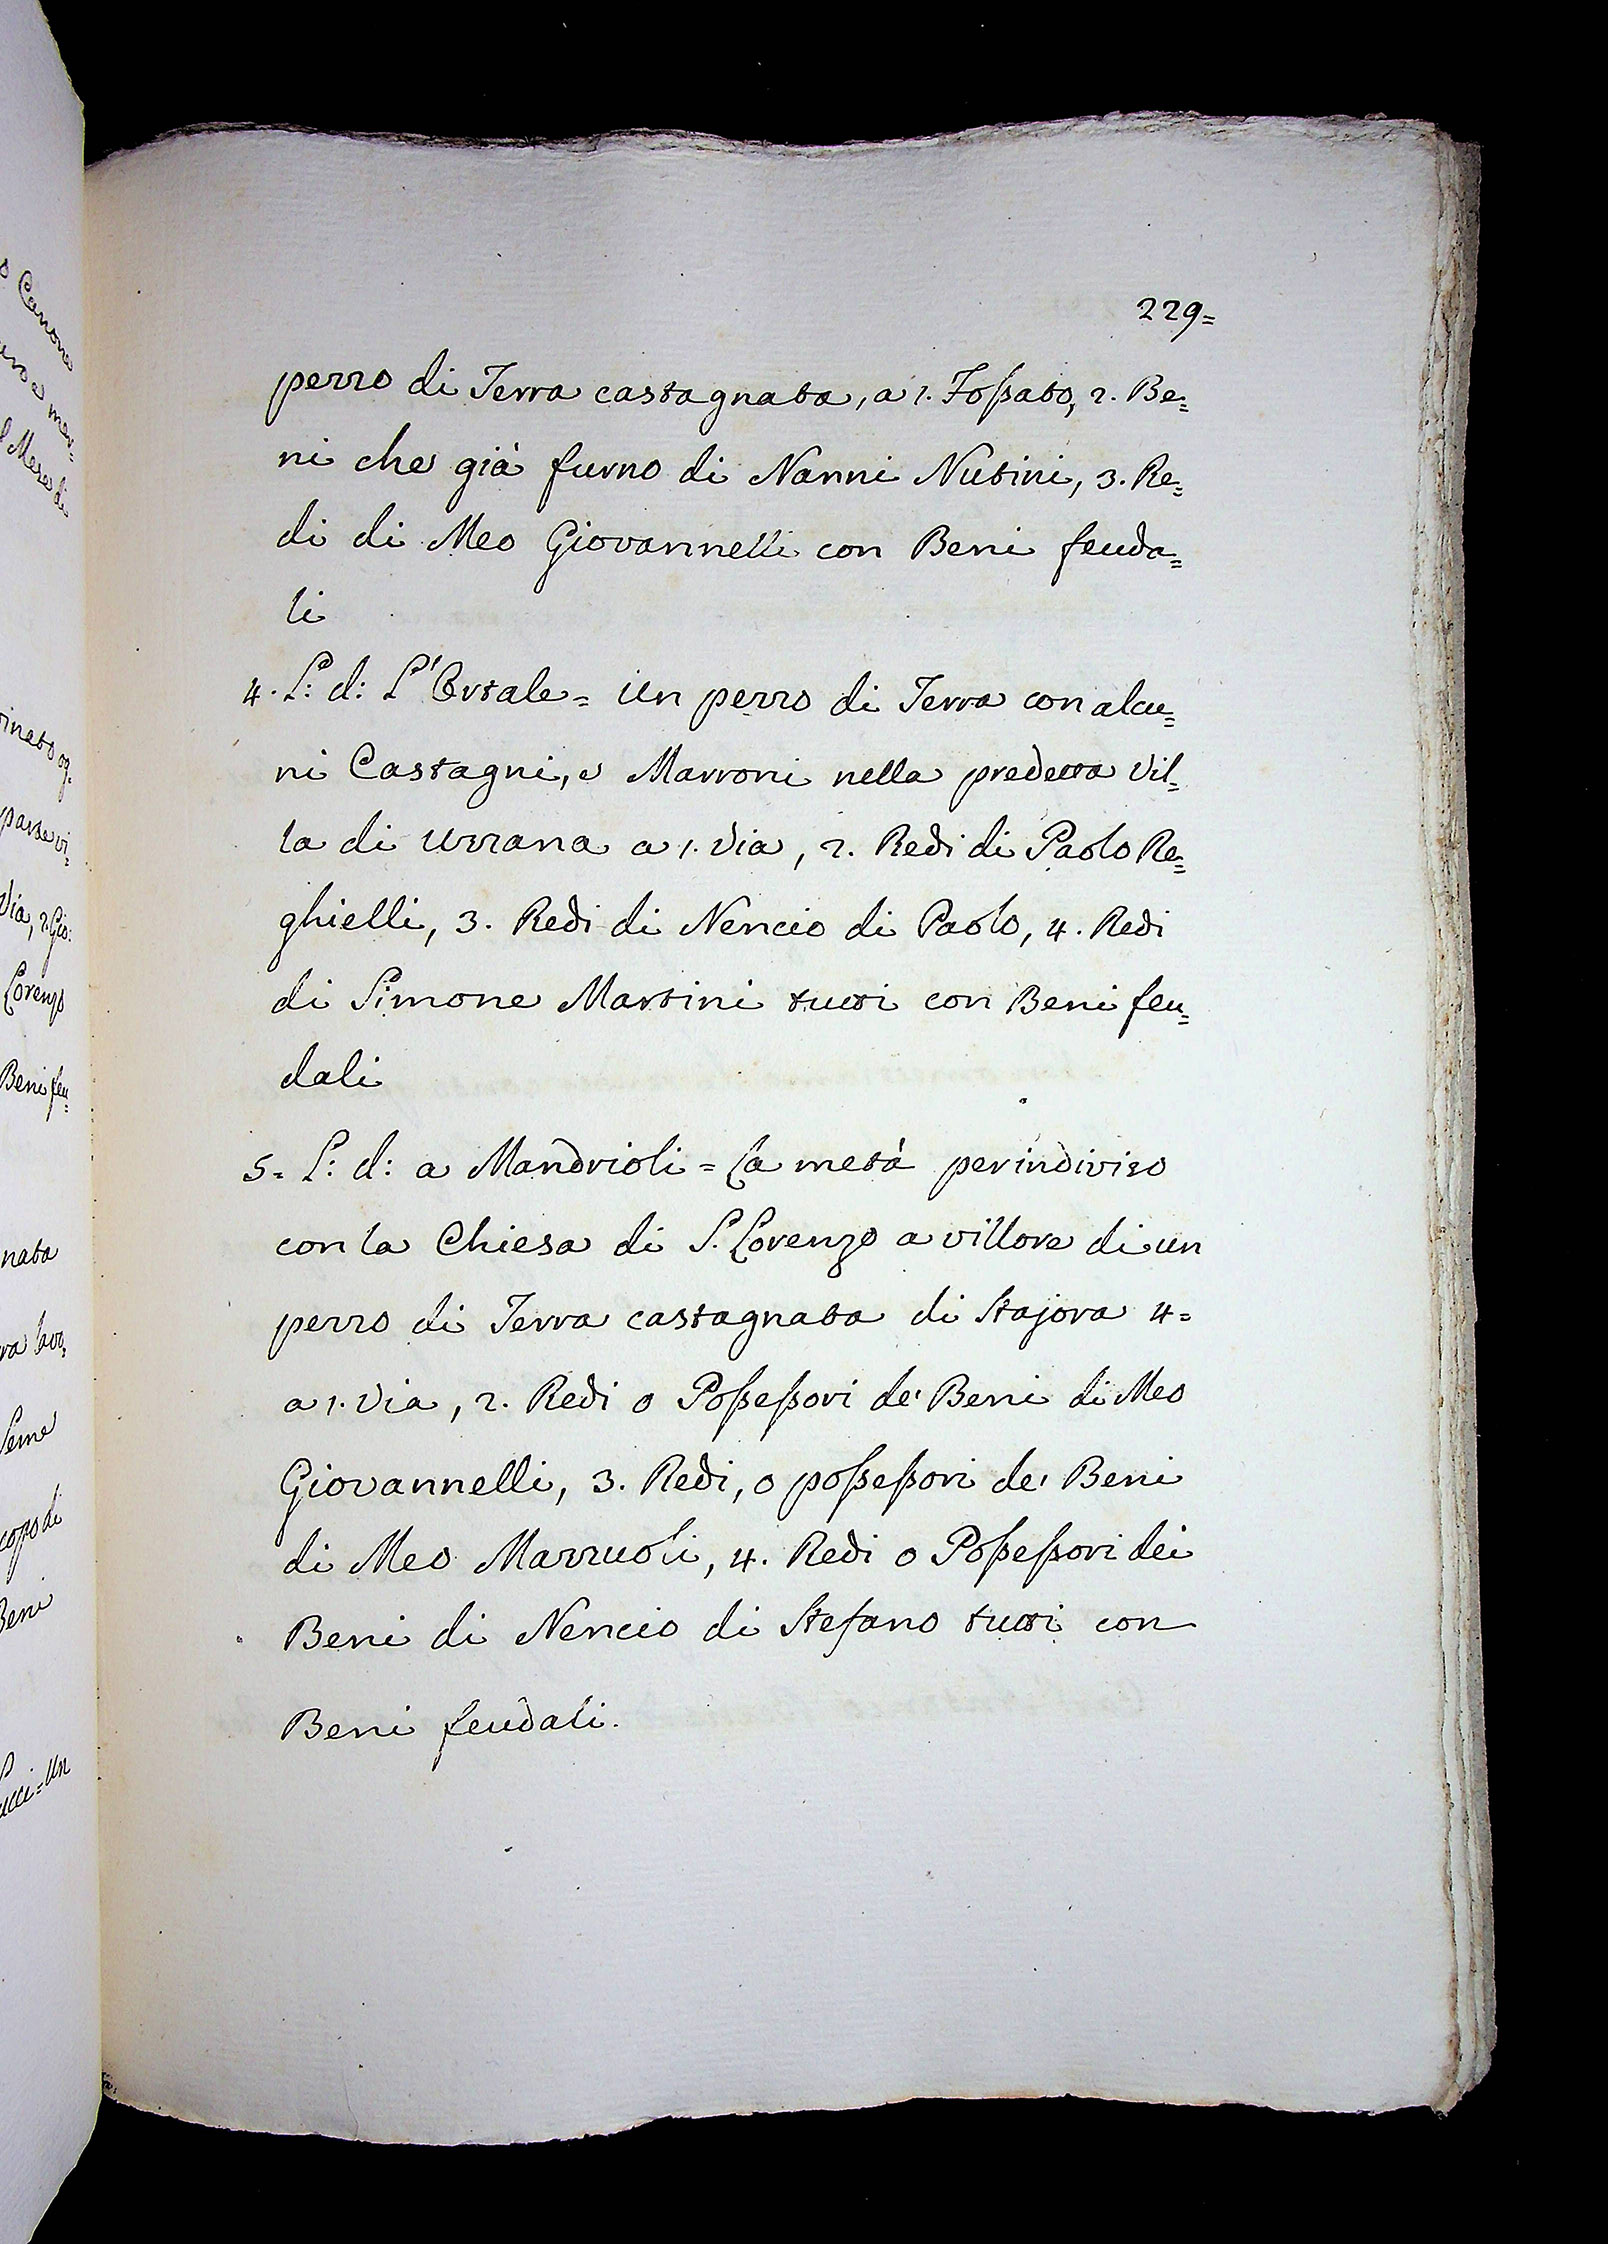 229=
pezzo di Terra castagnata, a 1. Fossato, 2. Be=
ni che già furno di Nanni Nutini, 3. Re=
di di Meo Giovannelli con Beni feuda=
li
4. L: d: L'Ortale = Un pezzo di Terra con alcu=
ni Castagni, e Marroni nella predetta Vil=
la di Uzzana a 1. Via, 2. Redi di Paolo Re=
ghielli, 3. Redi di Nencio di Paolo, 4. Redi
di Simone Martini tutti con Beni feu=
dali
5. L: d: a Mandrioli = La metà per indiviso
con la Chiesa di S. Lorenzo a Villore di un
pezzo di Terra castagnata di Stajora 4=
a 1. Via, 2. Redi o Possessori de' Beni di Meo
Giovannelli, 3. Redi, o possessori de' Beni
di Meo Mazzuoli, 4. Redi o Possessori dei
Beni di Nencio di Stefano tutti con
Beni feudali.